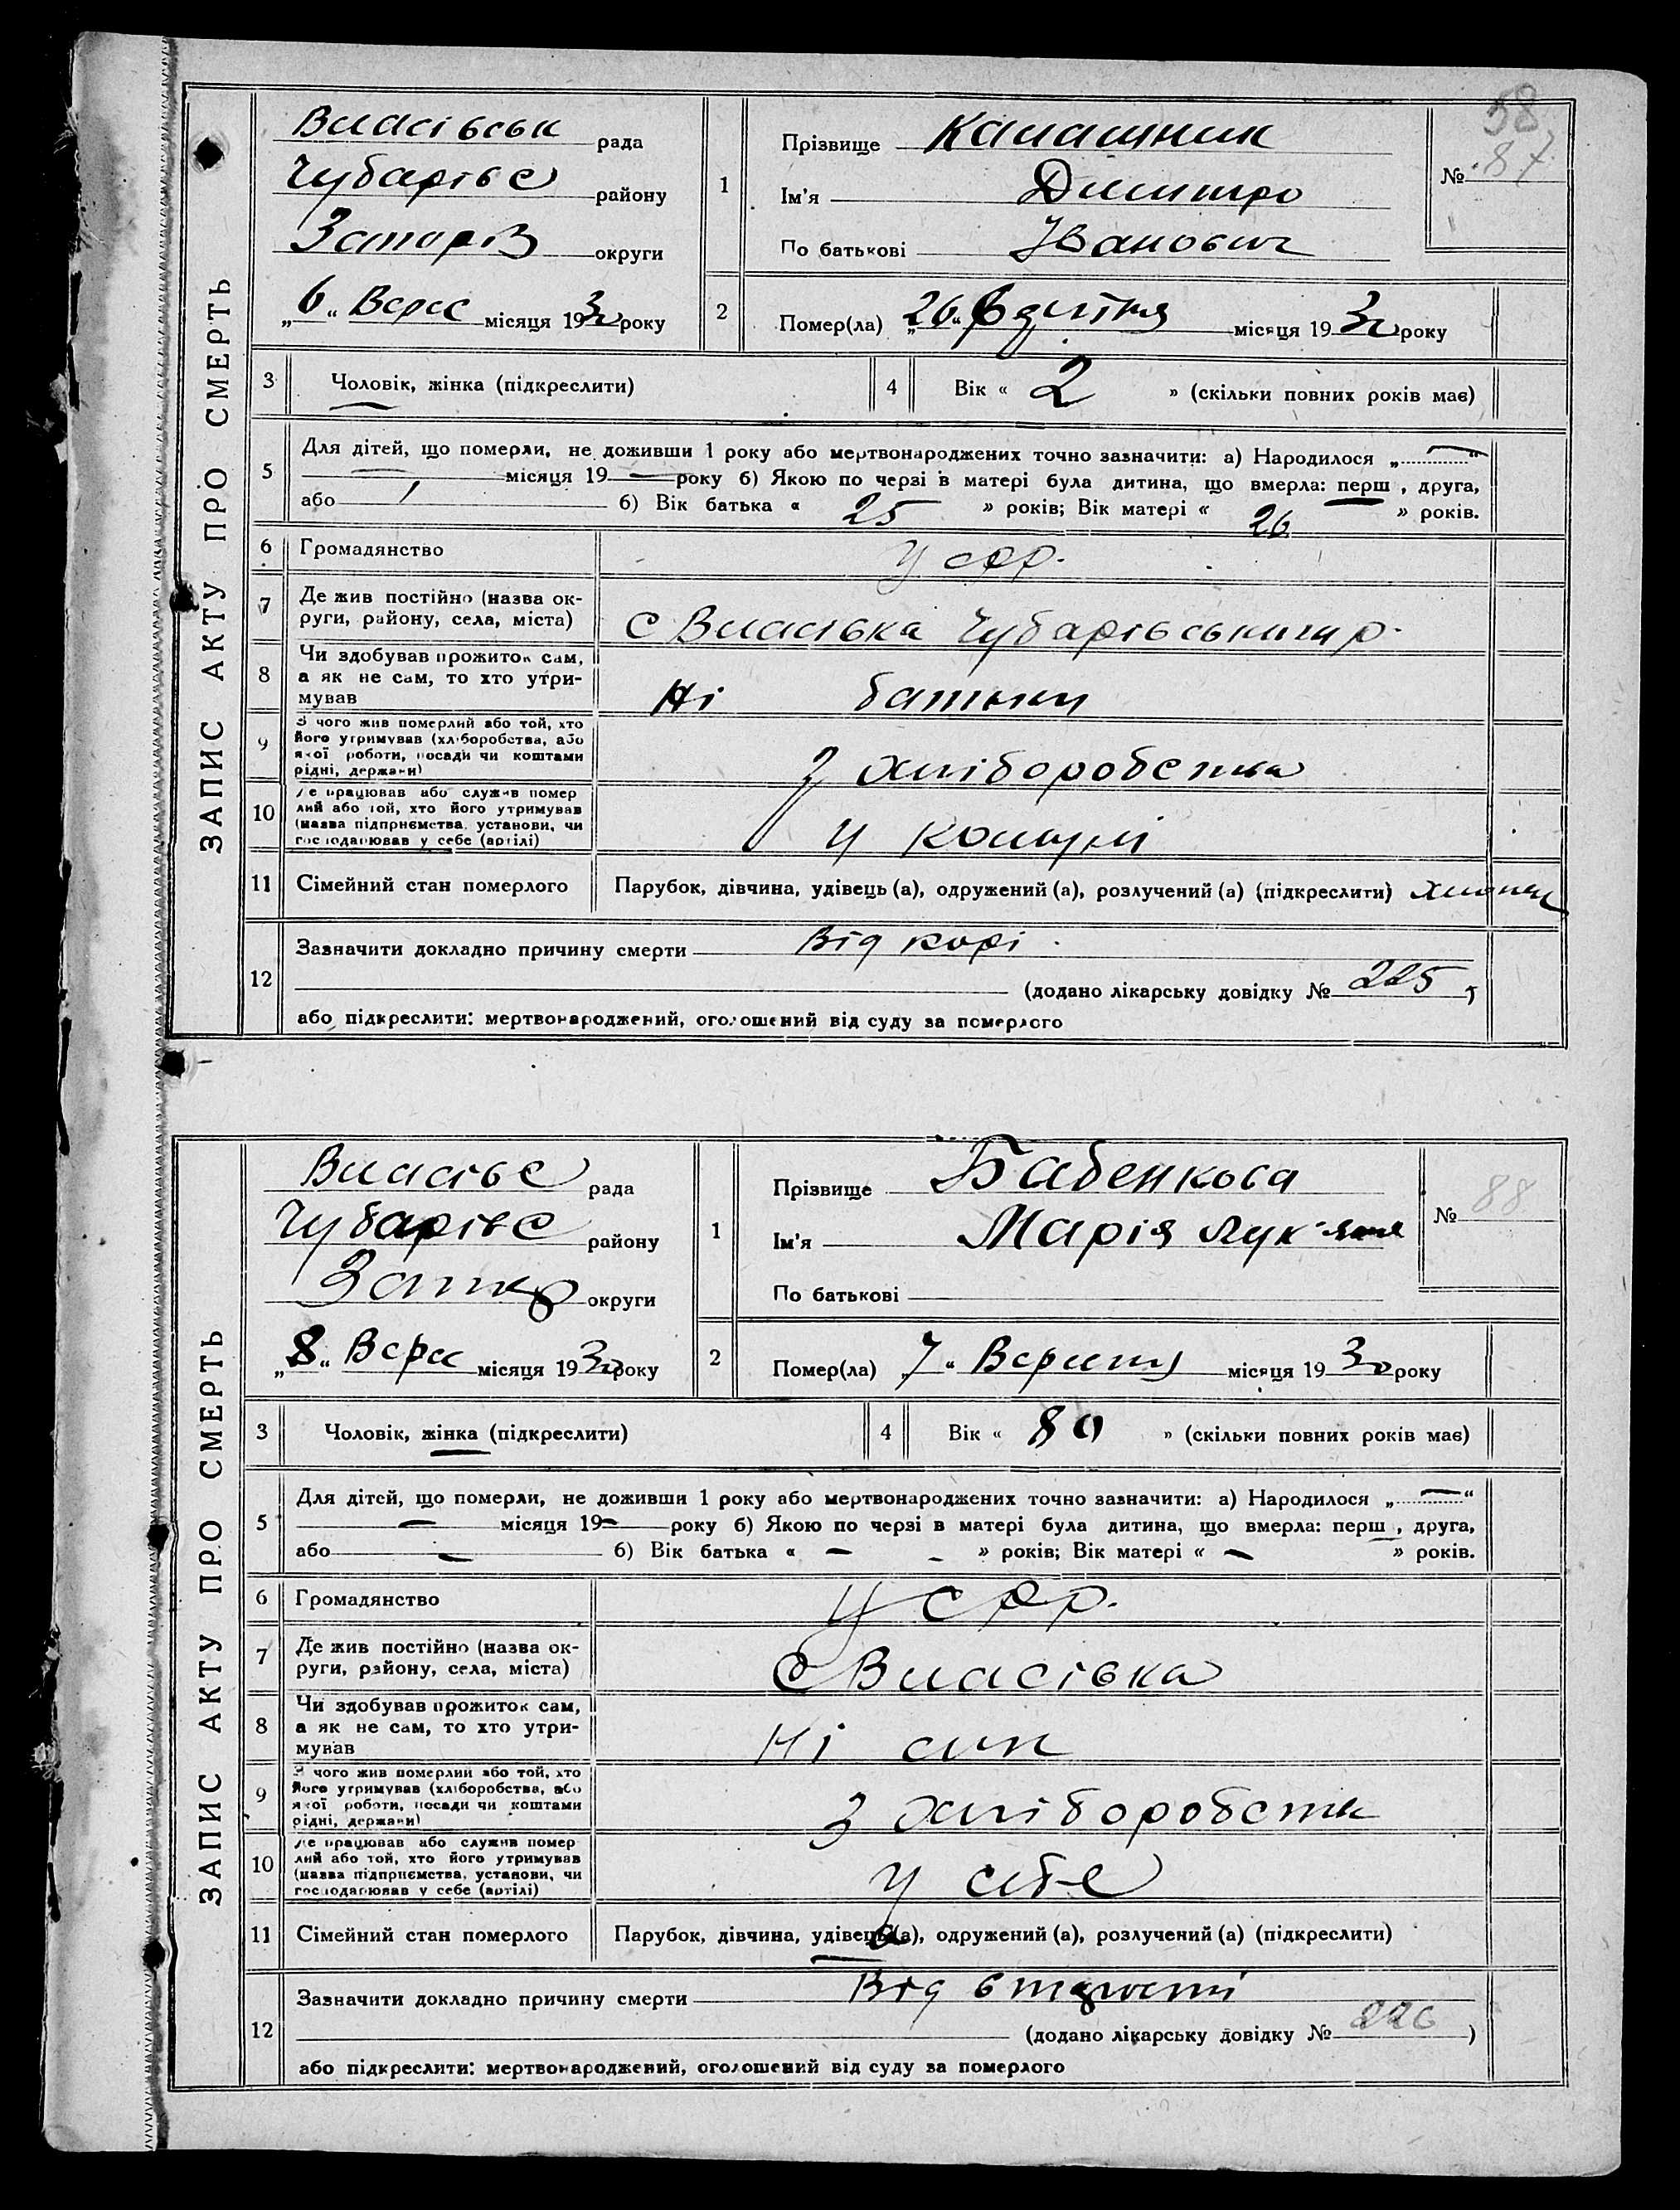 58
ЗАПИС АКТУ ПРО СМЕРТЬ
Власівськ рада
Чубарівс району
округи
„6“ Верес місяця 1930 року
1 Прізвище Калашник
Ім'я Дмитро
По батькові Іванович
№ 87
2 Помер(ла) „26“ місяця 1930 року
3 Чоловік, жінка (підкреслити)
4 Вік « 2 » (скільки повних років має)
5 Для дітей, що померли, не доживши 1 року або мертвонароджених точно зазначити: а) Народилося „ — “
— місяця 19 — року б) Якою по черзі в матері була дитина, що вмерла: перш , друга,
або б) Вік батька « 25 » років; Вік матері « 26 » років.
6 Громадянство УСРР.
7 Де жив постійно (назва ок-
руги, району, села, міста) с Власівка Чубарівського р.
8 Чи здобував прожиток сам,
а як не сам, то хто утри-
мував Ні батьки
9 З чого жив померлий або той, хто
його утримував (хліборобства, або
якої роботи, посади чи коштами
рідні, держави) З хліборобства
10 Де працював або служив помер
лий або той, хто його утримував
(назва підприємства, установи, чи
господарював у себе (артілі) у комуні
11 Сімейний стан померлого Парубок, дівчина, удівець (а), одружений (а), розлучений (а) (підкреслити) хлопец
12 Зазначити докладно причину смерти Від корі
(додано лікарську довідку № 225 )
або підкреслити: мертвонароджений, оголошений від суду за померлого
ЗАПИС АКТУ ПРО СМЕРТЬ
Власівс рада
Чубарівс району
округи
„8“ Верес місяця 1930 року
1 Прізвище Бабенкова
Ім'я Марія Лук'яна
По батькові
№ 88
2 Помер(ла) „7“ Вересня місяця 1930 року
3 Чоловік, жінка (підкреслити)
4 Вік « 80 » (скільки повних років має)
5 Для дітей, що померли, не доживши 1 року або мертвонароджених точно зазначити: а) Народилося „ — “
— місяця 19 — року б) Якою по черзі в матері була дитина, що вмерла: перш , друга,
або — б) Вік батька « — » років; Вік матері « — » років.
6 Громадянство УСРР.
7 Де жив постійно (назва ок-
руги, району, села, міста) с Власівка
8 Чи здобував прожиток сам,
а як не сам, то хто утри-
мував Ні син
9 З чого жив померлий або той, хто
його утримував (хліборобства, або
якої роботи, посади чи коштами
рідні, держави) З хліборобства
10 Де працював або служив помер
лий або той, хто його утримував
(назва підприємства, установи, чи
господарював у себе (артілі) у себе
11 Сімейний стан померлого Парубок, дівчина, удівець (а), одружений (а), розлучений (а) (підкреслити)
12 Зазначити докладно причину смерти Від старості
(додано лікарську довідку № 226 )
або підкреслити: мертвонароджений, оголошений від суду за померлого